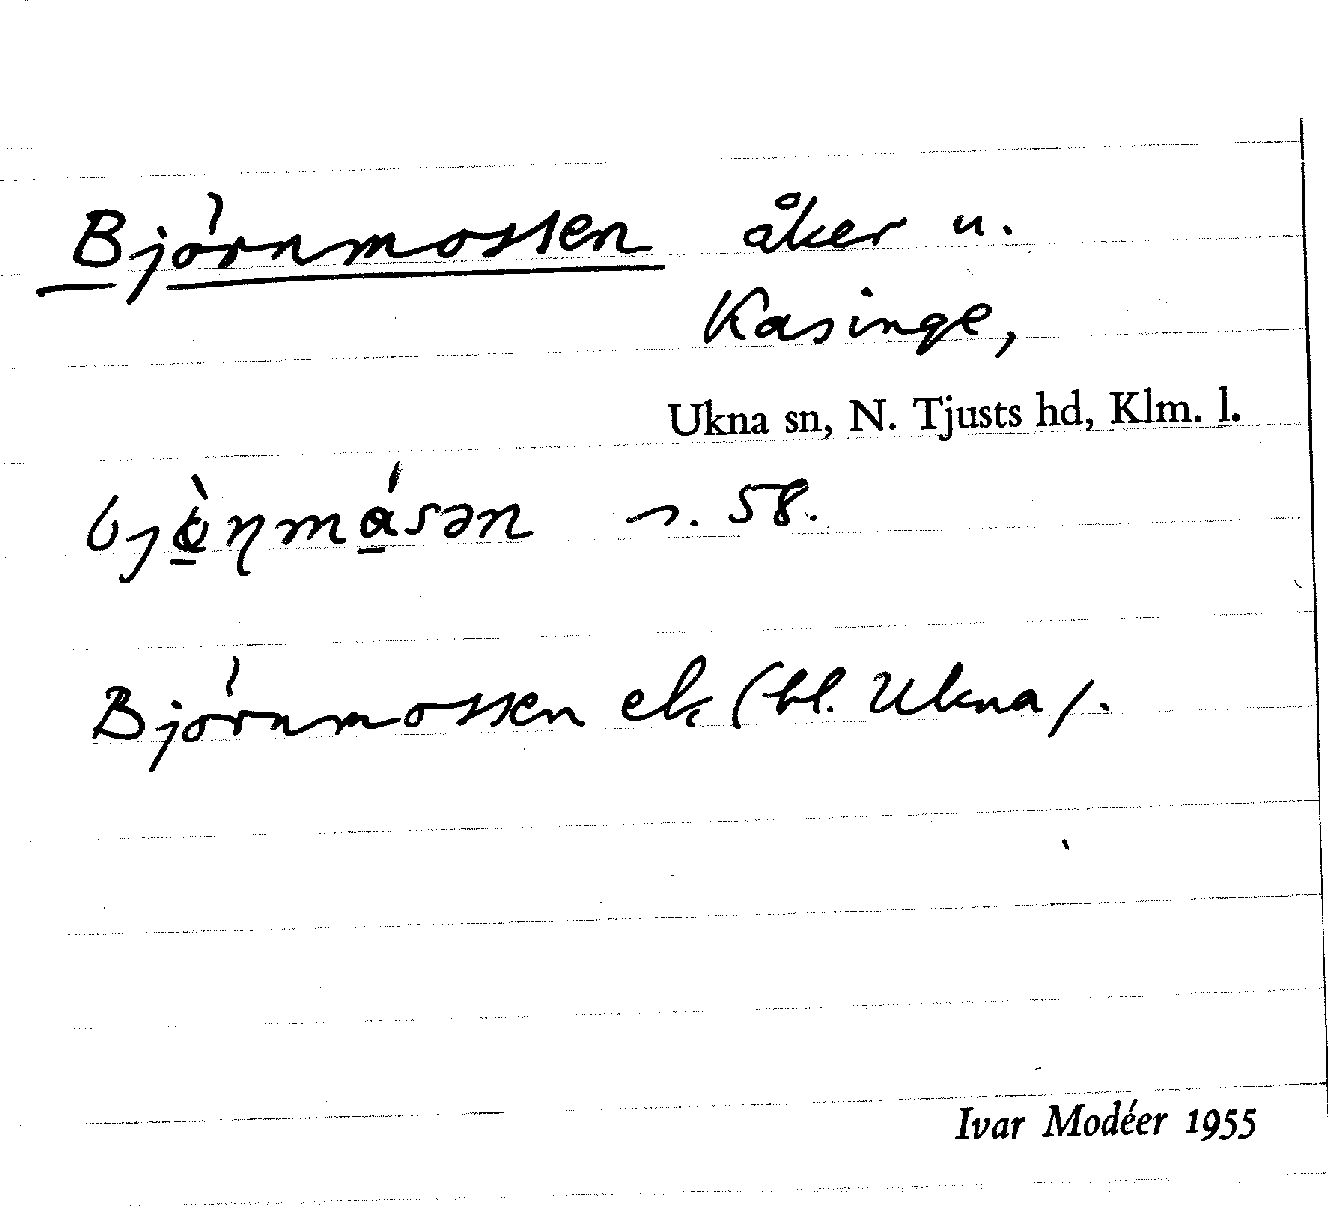 Björnmossen åker u.
Kasinge,
Ukna sn, N. Tjusts hd, Klm. l.
s. 58.
Björnmossen ek (bl. Ukna).
Ivar Modéer 1955